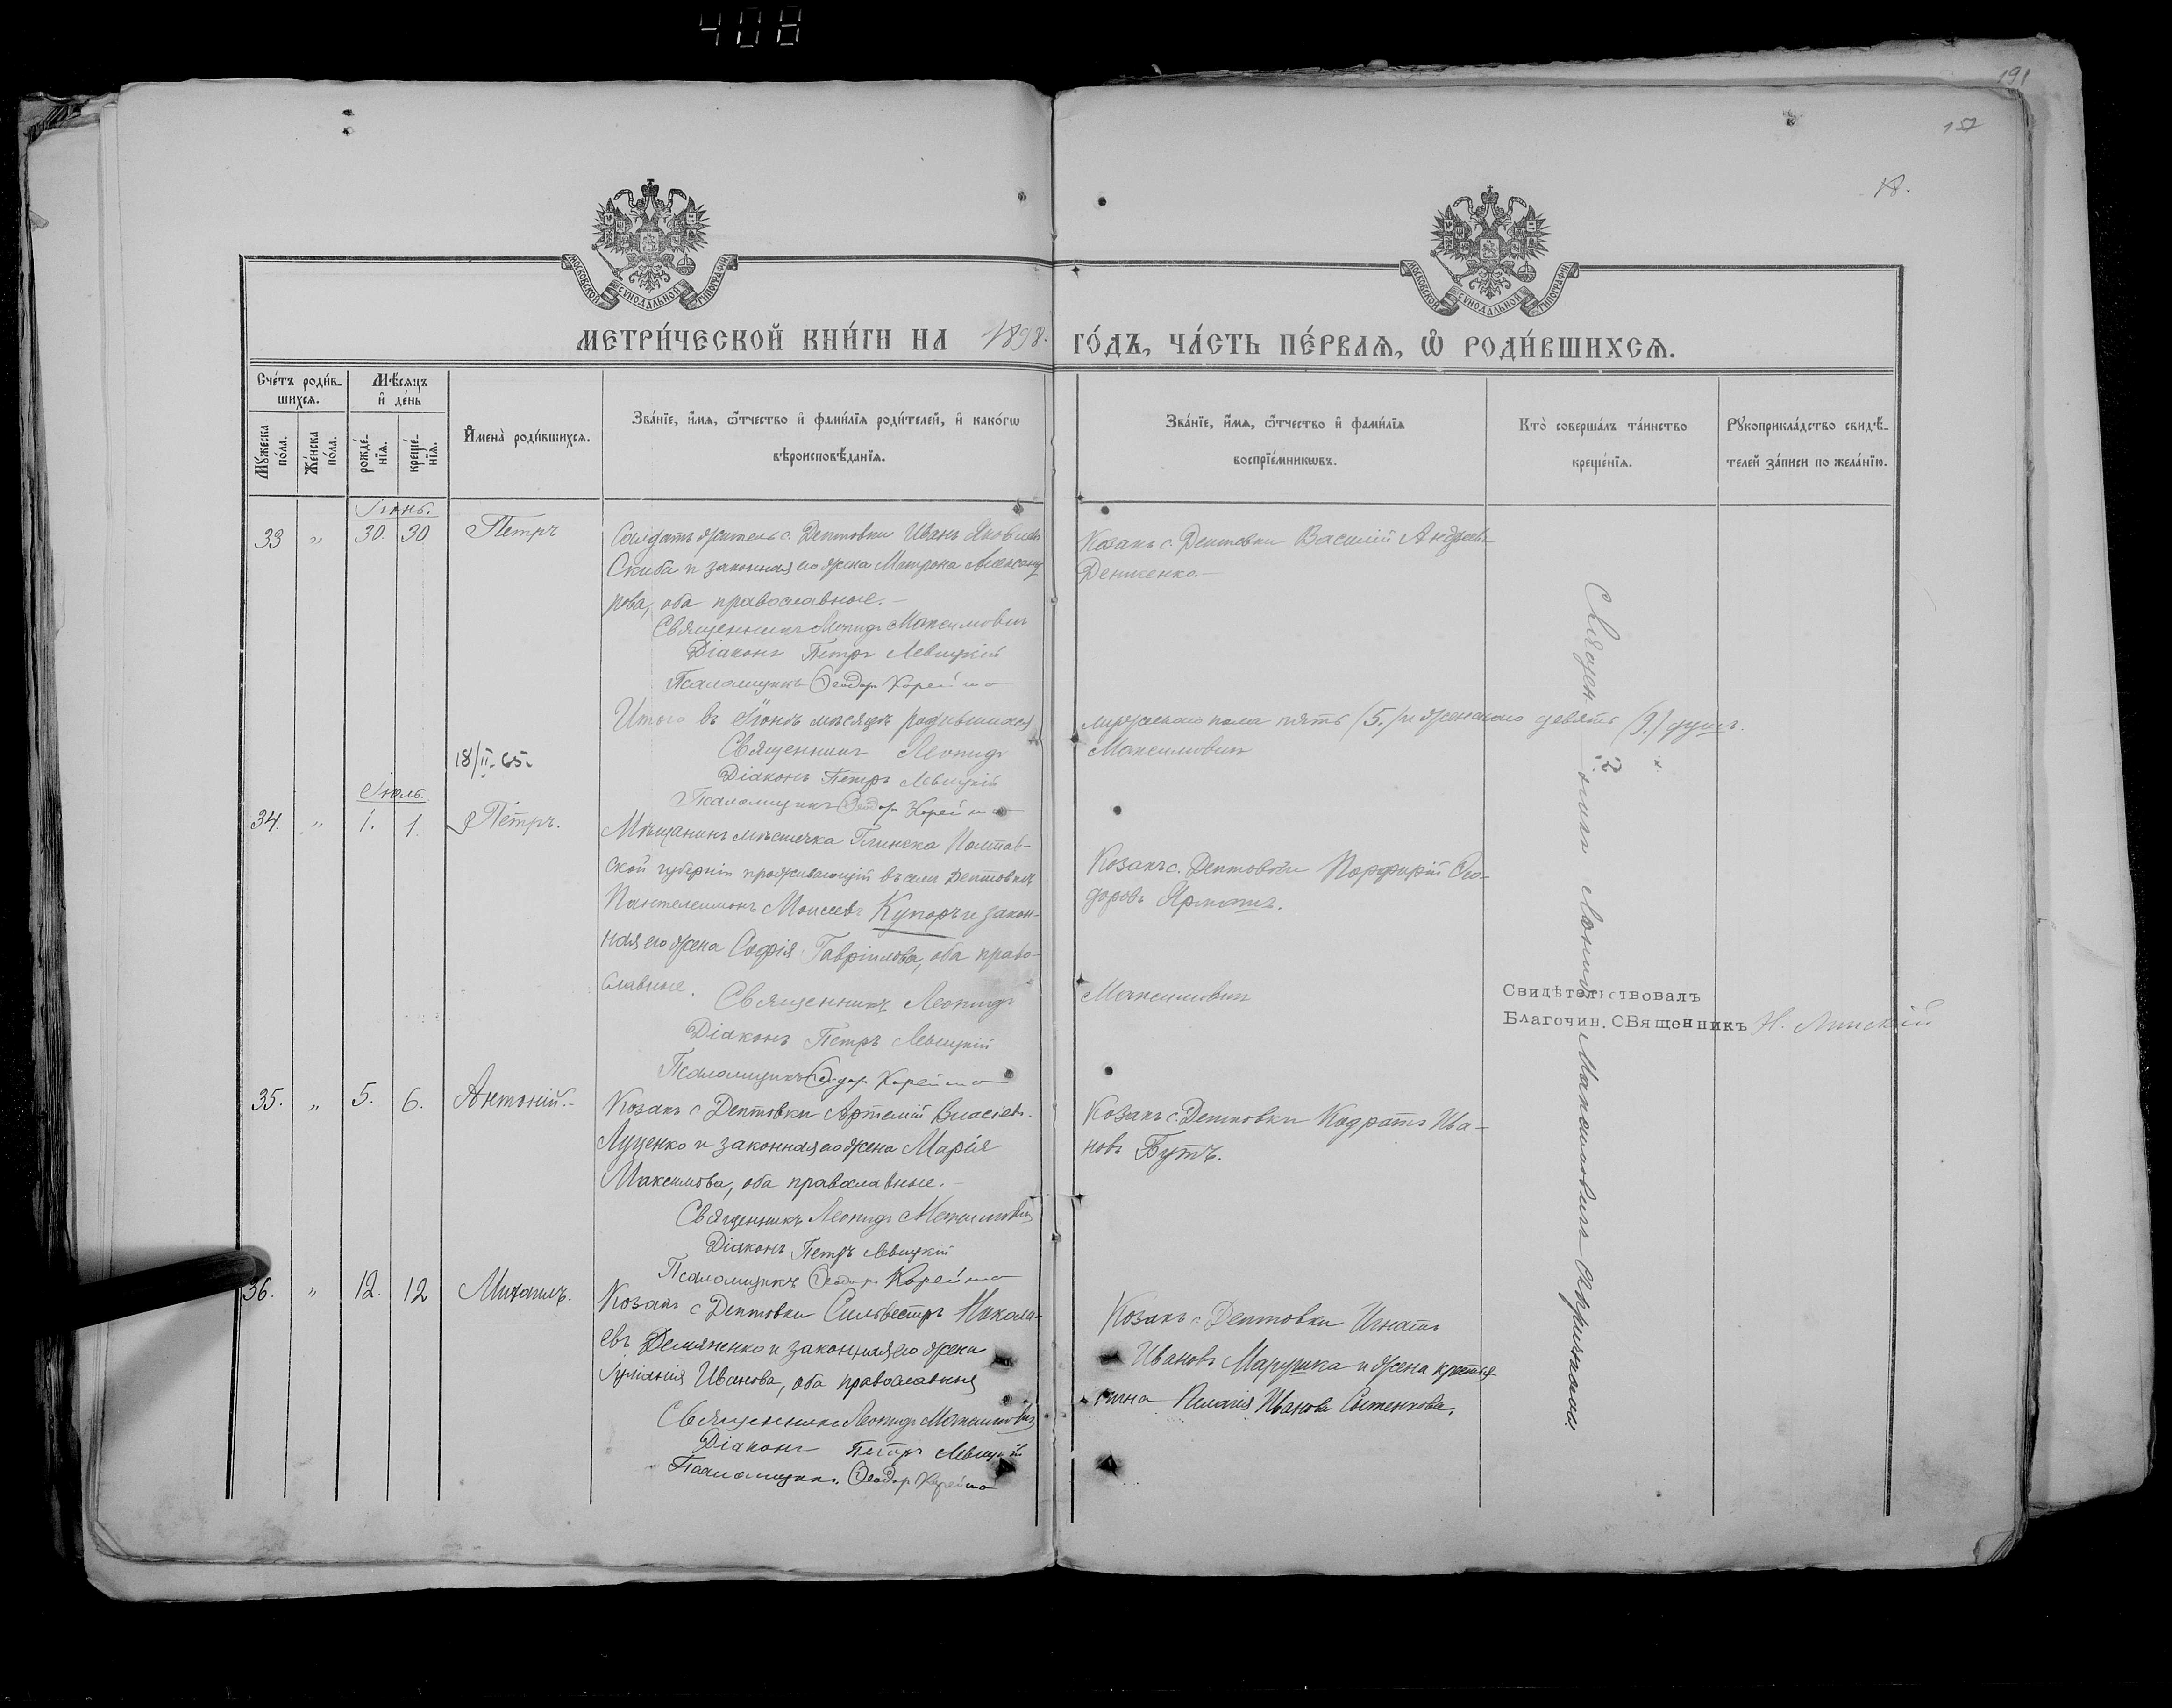 408
191
157
18.
МОСКОВСКОЙ СѴНОДАЛЬНОЙ ТИПОГРАФІИ
МОСКОВСКОЙ СѴНОДАЛЬНОЙ ТИПОГРАФІИ
МЕТРИ́ЧЕСКОЙ КНИ́ГИ НА 1898. ГО́ДЪ, ЧА́СТЬ ПЕ́РВАѦ, Ѽ РОДИ́ВШИХСѦ.
Сче́тъ роди́в-
шихсѧ.
Мѣ́сѧцъ
и҆ де́нь
Мꙋ́жеска
по́ла.
Же́нска
по́ла.
рожде́-
нїѧ.
креще́-
нїѧ.
И҆мена̀ роди́вшихсѧ.
Зва́нїе, и҆́мѧ, ѻ҆́тчество и҆ фами́лїѧ роди́телей, и҆ како́гѡ
вѣроисповѣ́данїѧ.
Зва́нїе, и҆́мѧ, ѻ҆́тчество и҆ фами́лїѧ
воспрїе́мникѡвъ.
Кто̀ соверша́лъ та́инство
креще́нїѧ.
Рꙋкоприкла́дство свидѣ́-
телей за́писи по жела́нїю.
Іюнь.
33 " 30. 30 Петръ
Солдатъ житель с. Дептовки Иванъ Яковлевъ
Скиба и законная его жена Матрона Александ
рова, оба православные.
Священникъ Леонидъ Максимовичъ
Діаконъ Петръ Левицкій
Псаломщикъ Ѳеодоръ Корейша
Козакъ с. Дептовки Василій Андреевъ
Денженко.
Итого въ Іюнѣ мѣсяцѣ родившихся мужескаго пола пять (5.) и женскаго девять (9.) душъ.
Священникъ Леонидъ Максимовичъ
Діаконъ Петръ Левицкій
Псаломщикъ Ѳеодоръ Корейша
18/II-65.
Іюль.
34. " 1. 1. Петръ.
Мѣщанинъ мѣстечка Глинска Полтав-
ской губерніи проживающій въ селѣ Дептовкѣ
Пантелеимонъ Моисеевъ Купоръ и закон-
ная его жена Софія Гавріилова, оба право-
славные.
Священникъ Леонидъ Максимовичъ
Діаконъ Петръ Левицкій
Псаломщикъ Ѳеодоръ Корейша
Козакъ с. Дептовки Порфирій Ѳео-
доровъ
35. " 5. 6. Антоній.
Козакъ с Дептовки Артемій Власіевъ
Луценко и законная его жена Марія
Максимова, оба православные.
Священникъ Леонидъ Максимовичъ
Діаконъ Петръ Левицкій
Псаломщикъ Ѳеодоръ Корейша
Козакъ с. Дептовки Кодратъ Ива-
новъ Бутъ.
36. " 12. 12 Михаилъ.
Козакъ с Дептовки Сильвестръ Никола-
евъ Демяненко и законная его жена
Іуліанія Иванова, оба православныя
Священникъ Леонидъ Максимовичъ
Діаконъ Петръ Левицкій
Псаломщикъ Ѳеодоръ Корейша
Козакъ с. Дептовки Игнатъ
Ивановъ Марушка и жена
Пелагія Иванова
Священникъ Леонидъ Максимовичъ
Свидѣтельствовалъ
Благочин. Священникъ Н.